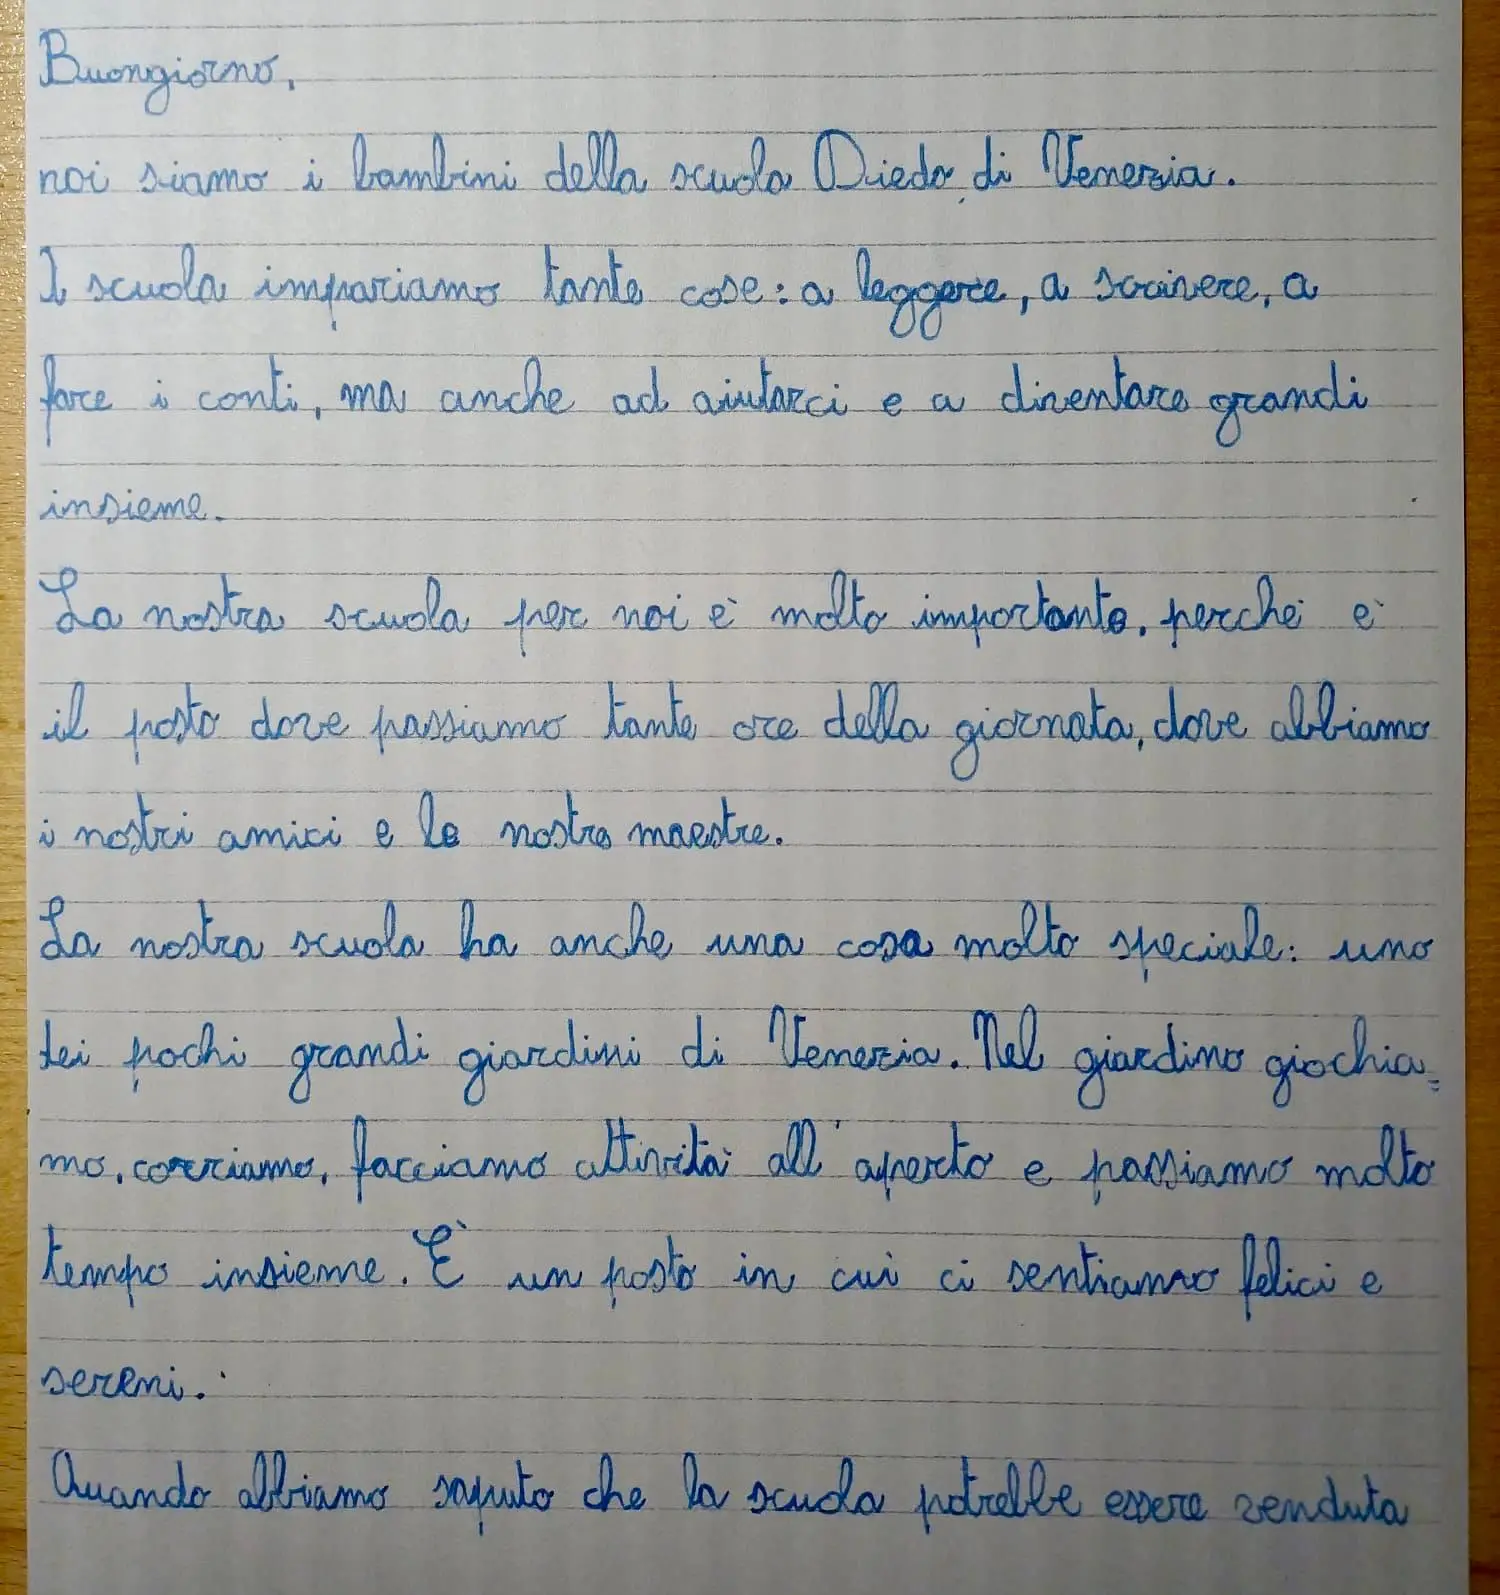 Buongiorno,
noi siamo i bambini della scuola Diedo di Venezia.
A scuola impariamo tante cose: a leggere, a scrivere, a
fare i conti, ma anche ad aiutarci e a diventare grandi
insieme.
La nostra scuola per noi è molto importante, perché è
il posto dove passiamo tante ore della giornata, dove abbiamo
i nostri amici e le nostre maestre.
La nostra scuola ha anche una cosa molto speciale: uno
dei pochi grandi giardini di Venezia. Nel giardino giochia=
mo, corriamo, facciamo attività all'aperto e passiamo molto
tempo insieme. È un posto in cui ci sentiamo felici e
sereni.
Quando abbiamo saputo che la scuola potrebbe essere venduta